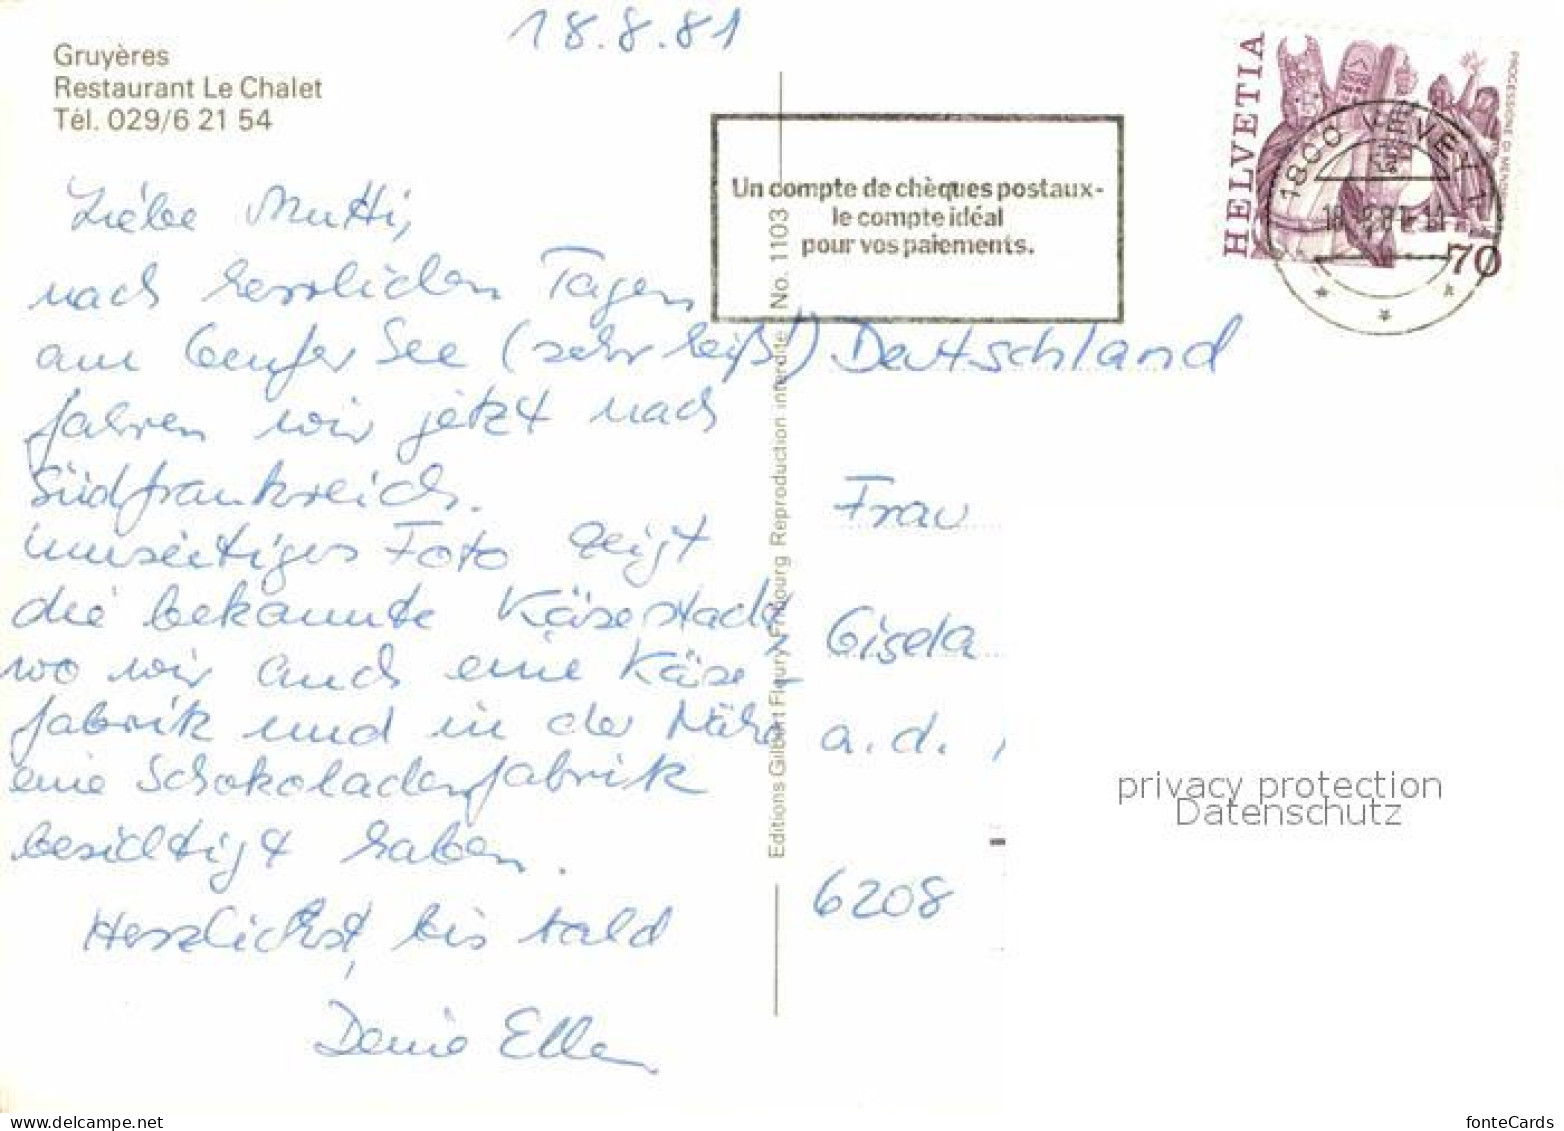 18.8.81
Gruyères
Restaurant Le Chalet
Tél. 029/6 21 54
Liebe Mutti,
nach herrlichen Tagen
am Genfer See (sehr heiß!)
fahren wir jetzt nach
Südfrankreich.
umseitiges Foto zeigt
die bekannte Käsestadt,
wo wir auch eine Käse-
fabrik und in der Nähe
eine Schokoladenfabrik
besichtigt haben.
Herzlichst, bis bald
Deine Ellen
Editions Gilbert Fleury Fribourg Reproduction interdite No. 1103
Un compte de chèques postaux-
le compte idéal
pour vos paiements.
HELVETIA
PROCESSIONE DI
70
1800 VEVEY 1
18.8.81-11
Deutschland
Frau
Gisela
a.d.
6208
privacy protection
Datenschutz
www.delcampe.net
fonteCards